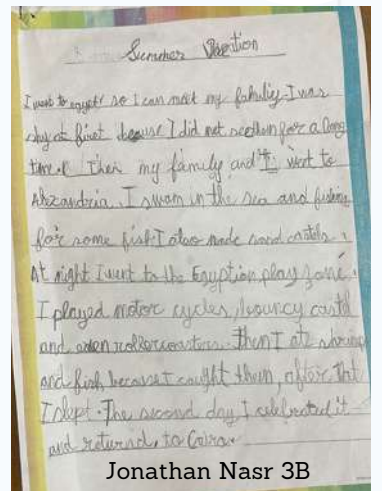 Summer Vacation
I went to egypt so I can meet my family. I was
shy at first because I did not see them for a long
time. Then my family and I went to
Alexandria. I swam in the sea and fishing
for some fish. I also made sand castels.
At night I went to the Egyption play zone.
I played motor cycles, bouncy castl
and even rollercoasters. Then I ate shrimp
and fish because I caught them, after that
I slept. The second day I celebrated it
and returnd, to Cairo.
Jonathan Nasr 3B